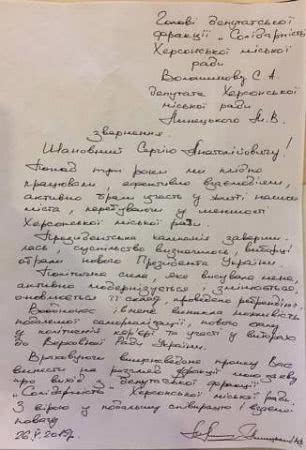 Голові депутатської
фракції „Солідарність"
Херсонської міської
ради
Волошинову С.А.
депутата Херсонської
міської ради
М.В.
звернення.
Шановний Сергію Анатолійовичу!
Понад три роки ми плідно
працювали, ефективно взаємодіяли,
активно брали участь у житті нашого
міста, перебуваючи у меншості
Херсонської міської ради.
Президентська кампанія заверши-
лась, суспільство визначилось, виборці
обрали нового Президента України.
Політична сила, яка висувала мене,
активно модернізується і змінюється,
оновлюється її склад, проведено ребрендінг.
Водночас і в мене виникла можливість
подальшої самореалізації, нового етапу
у політичній кар'єрі та участі у виборах
до Верховної Ради України.
Враховуючи вищенаведене прошу Вас
винести на розгляд фракції мою заяву
про вихід з депутатської фракції
„Солідарність" Херсонської міської ради.
З вірою у подальшу співпрацю і взаємо-
повагу
26.V.2019р.